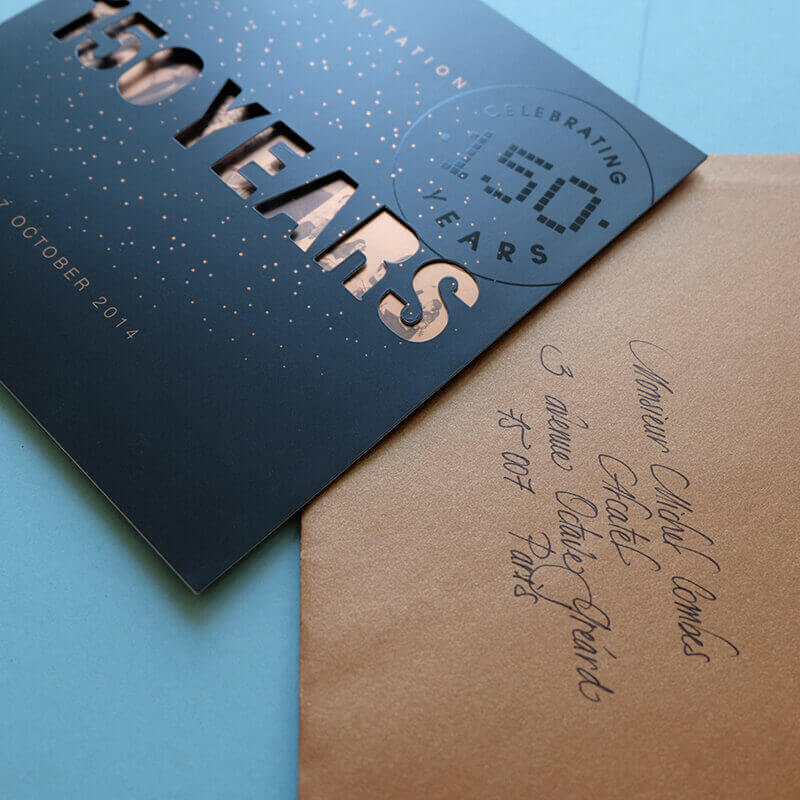 NVITATION
150 YEARS
7 OCTOBER 2014
CELEBRATING
150
YEARS
Monsieur Michel Combes
Alcatel
3 avenue Octave Gréard
75007 Paris